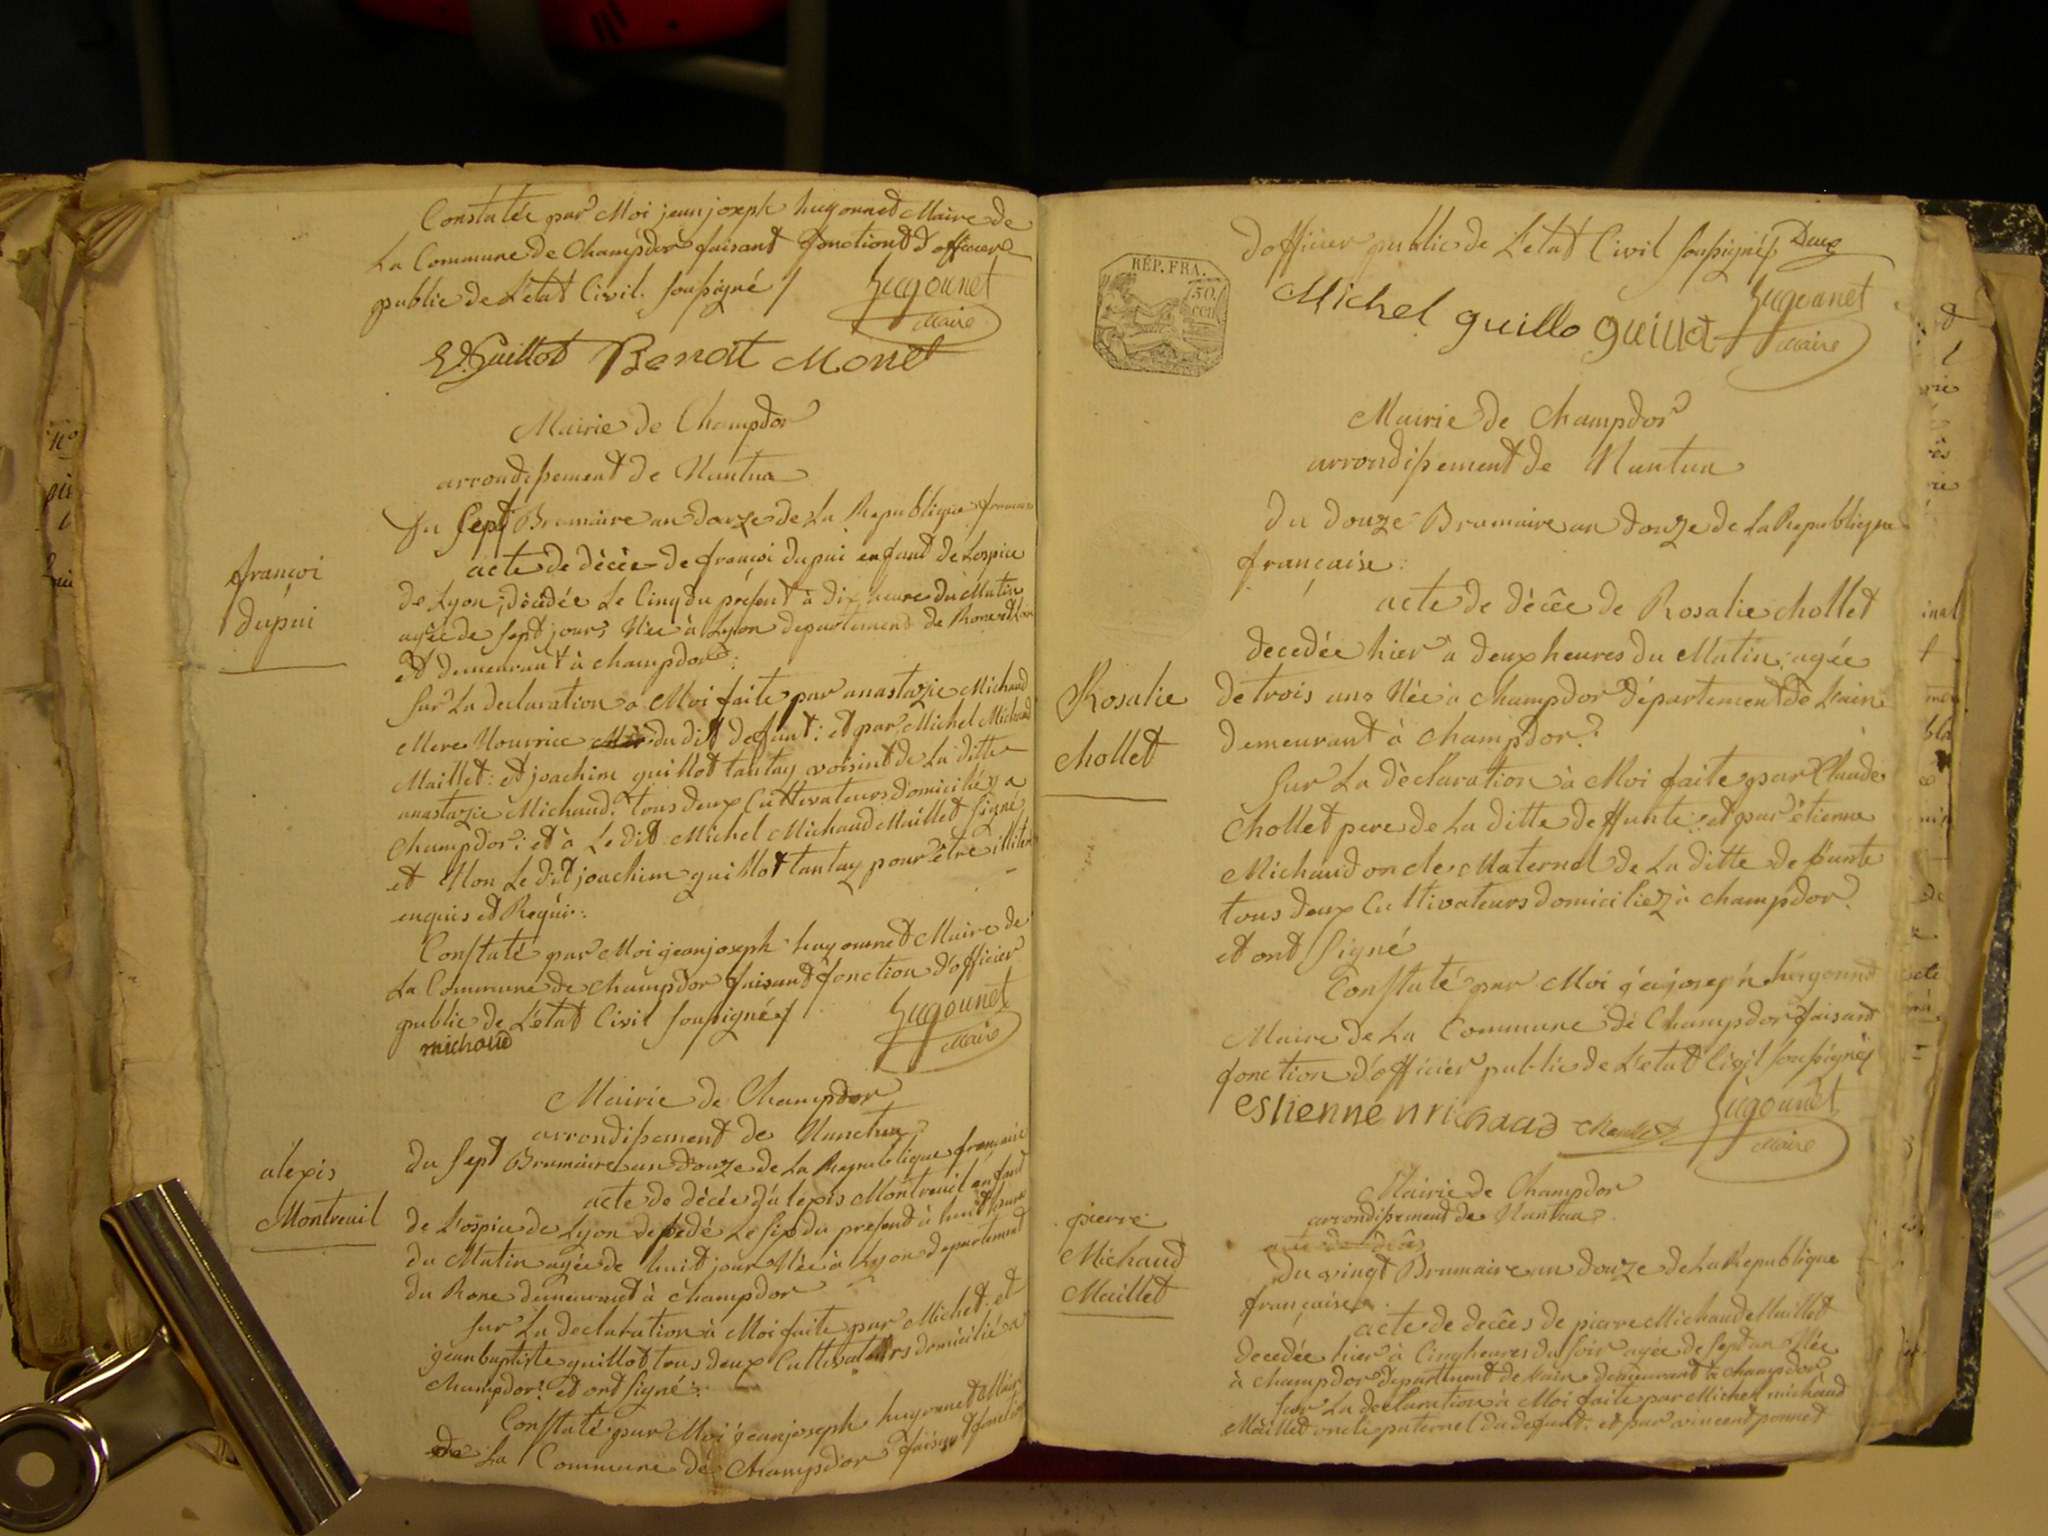 Constatée par Moi jean joseph hugonnet Maire de
La Commune de Champdor faisant fonctiont d'officier
public de L'état Civil soussigné /
hugonnet
Maire
Guillot Benoit Monet
Mairie de Champdor
arrondissement de Nantua
du sept Brumaire an douze de La Republique
acte de décée de françoi dupui enfant de Lospice
de Lyon; décédée Le Cinq du present à dix heure du Matin
agée de sept jours, Née à Lyon departement de
et demeurant à champdor:
françoi
dupui
sur La declaration a Moi faite par anastazie Michaud
Mere Nourrice du dit defunt: et par Michel Michaud
Maillet: et joachim guillot tantay voisint de La ditte
anastazie Michaud: tous deux Cultivateurs domiciliéz a
Champdor: et à Le dit Michel Michaud Maillet signé
et Non Le dit joachim guillot tantay pour être
enquis et Requi:
Constaté par Moi jean joseph hugonnet Maire de
La Commune de champdor faisant fonction d'officier
public de L'état Civil soussigné /
hugonnet
Maire
michaud
Mairie de Champdor
arrondissement de Nanctua
du sept Brumaire an douze de La Republique française
acte de décée d'alexis Montreuil enfant
de L'ospice de Lyon Le six du present à huit heure
du Matin agée de huit jour Née à Lyon departement
du Rone demeurant à champdor
alexis
Montreuil
sur La declaration à Moi faite par Michel et
jean baptiste guillot tous deux Cultivateurs domicilié a
champdor: et ont signé:
Constaté par Moi jean joseph hugonnet Maire
de La Commune de Champdor faisant fonction
d'officier public de L'état Civil soussigné Deux
RÉP. FRA.
50
cen
Michel guillo guillot
hugonnet
Maire
Mairie de Champdor
arrondissement de Nantua
du douze Brumaire an douze de La Republique
française:
acte de décêe de Rosalie chollet
decedée hier à deux heures du Matin; agée
de trois ans Née à champdor département de L'ain
demeurant à champdor:
Rosalie
chollet
sur La déclaration à Moi faite par Claude
chollet pere de La ditte deffunte: et par étienne
Michaud oncle Maternel de La ditte defunte
tous deux Cultivateurs domiciliez à champdor
et ont signé
Constaté par Moi joseph hugonnet
Maire de La Commune de Champdor faisant
fonction d'officier public de L'etat Civil soussigné
estienne michaud chollet
hugonnet
Maire
Mairie de Champdor
arrondissement de Nantua
du vingt Brumaire an douze de La Republique
française
acte de decês de pierre Michaud Maillet
decedée hier à Cinq heures du soir agée de sept an Née
à champdor departement de L'ain demeurant à champdor
pierre
Michaud
Maillet
sur La declaration à Moi faite par Michel michaud
Maillet oncle paternel du defunt: et par vincent ponnet